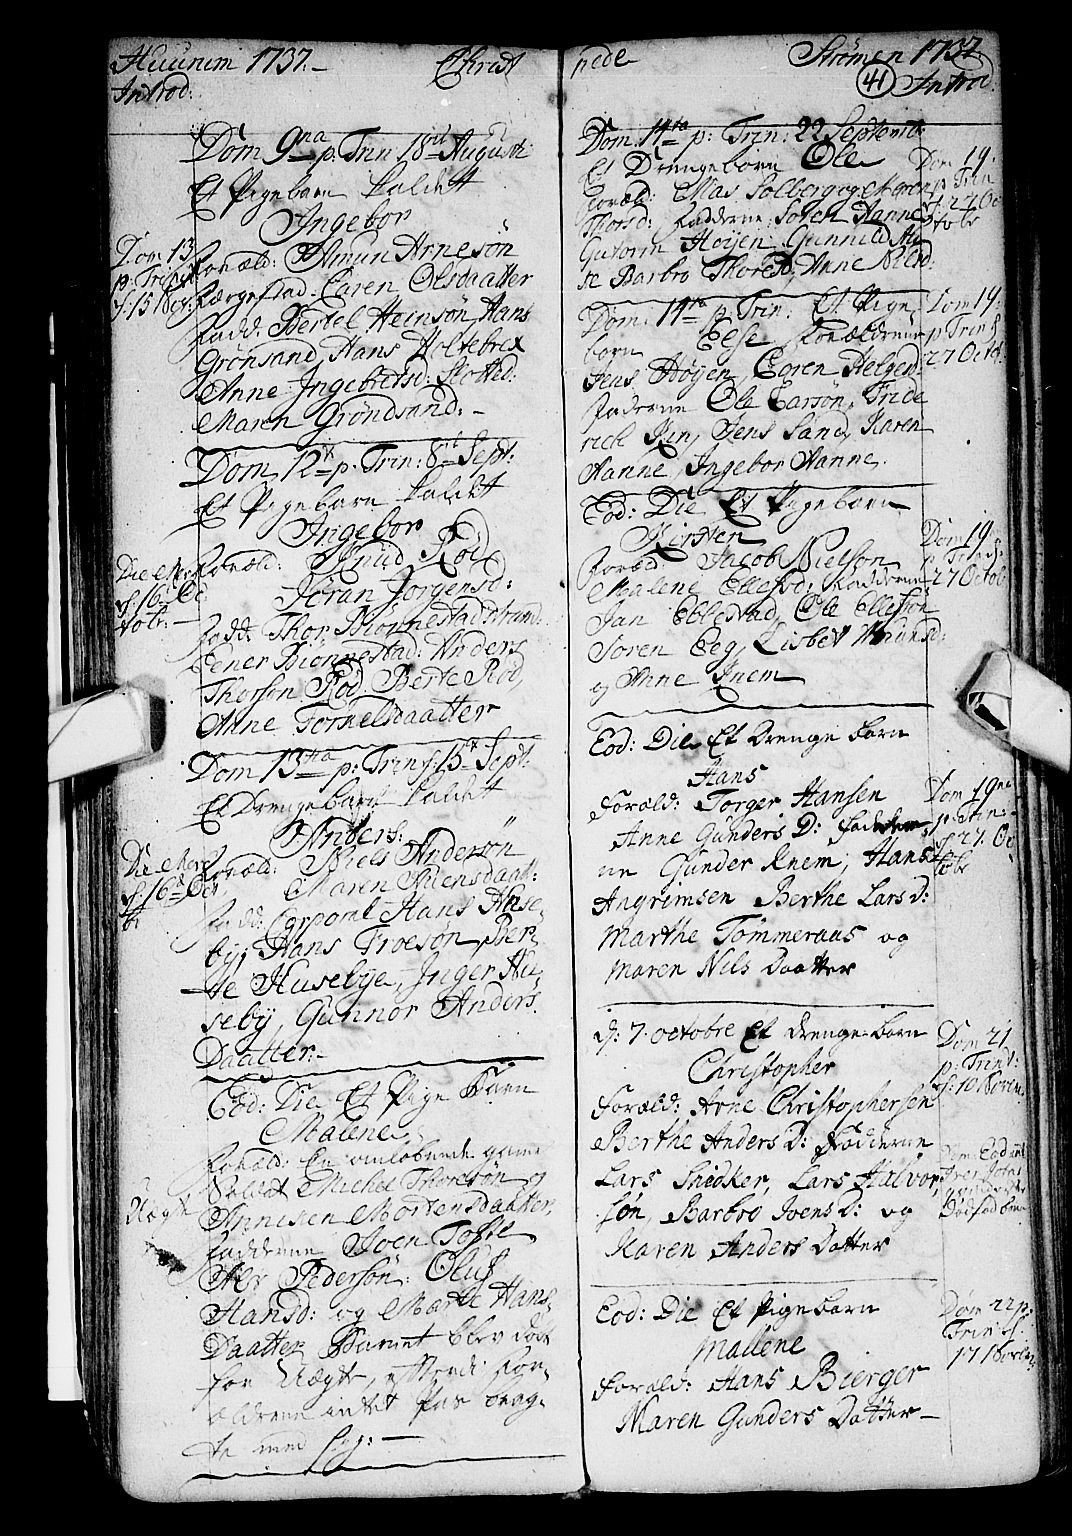 Huurum 1737.- Christ
Introd:
Dom 9na p. Trin 18de Augusti
Et Pigebarn kaldet
Ingebor
Dom 13
p. Trinit
d. 15 Sept:
Foræld: Amun Arnesön
Færgestad: Caren Olsdaatter
Fadd: Bertel Heinsön Hans
Grönsand, Hans Holtebrex
Anne Ingebretsd:
Maren Gröndsand: -
Dom 12te p. Trin: 8de Sept:
Et Pigebarn kaldet
Ingebor
d. 16
tobr: -
Foræld: Knud Röd
Jöran Jörgensd:
Fadd: Thor Bionnestadstrand:
Eener Bionnestad: Anders
Thorsön Röd, Berte Röd,
Anne Torkelsdaatter
Dom 13tia p: Trin: d: 15de Sept:
Et Drengebarn kaldet
Anders:
d. 16de Oct
Foræld: Niels Andersön
Maren
Fadd: Corporal Hans Huse-
by, Hans Troesön, Ber-
te Husebye, Inger Hu-
seby, Gunnor Anders
Daatter:-
Eod: Die Et Pige Barn
Malene,
Foræld: En omløbende gamel
Soldat Michel Thoresön og
Uægte
Annisken Mortensdaatter,
Fadderne Joen Tofte
Per Pedersön: Oluf
Hansd: og Marte Hans-
Daatter Barnet blev döbt
for Uægte, efterdi For-
ældrene intet Pas brag-
te med sig: -
pede Strömen 1737
41 Introd.
Dom 14ta p: Trin: 22 Septembr:
Et Drengebarn Ole
Foræld: Elias Solberg og Maren
Thorsd: Fadderne Soren Hanne
Gutorm Höijen Gunnild
Barbro Thoresd, Anne Nilsd:
Dom 19.
p: Trin
d. 27 Oc
tobr
Dom: 14ta p: Trin: Et Pige
born Else Forældrene
Jens Höyen Caren Helgesd
Faderne Ole Larsön, Fride
rich Kin, Jens Sand, Karen
Hanne Ingebor Hanne.
Dom 19.
p. Trin d
27 Octob.
Eod: Die Et Pigebarn
Kirsten
Foræld: Jacob Nielsön
Malene Ellefsd: Fadderne
Jan Ellestad, Ole Ellefsön
Soren Eeg, Lisbet Amunsd:
og Anne Knem
Dom 19
p. Trin
27 Octob
Eod: Die Et Drenge Barn
Hans
Foræld: Torger Hansen
Anne Gunders D: Fadder-
ne Gunder Knem, Hans
Angrimsen Berthe Lars D:
Marthe Tömmeraas og
Maren Nils Daatter
Dom 19na
p. Trin:
d. 27. Oc
tobr
d: 7 octobre Et drenge barn
Christopher
Foræld: Arne Christophersen
Berthe Anders D: Fadderne
Lars Snedker, Lars Halvor
søn, Barbro Joens D: og
Karen Anders Datter
Dom 21
p: Trinit:
d: 10 Novem
Eod: Die Et Pigebarn
Mallene
Foræld: Hans Bierger
Maren Gunders Datter -
Dom 22 p:
Trin: d.
17 Novemb